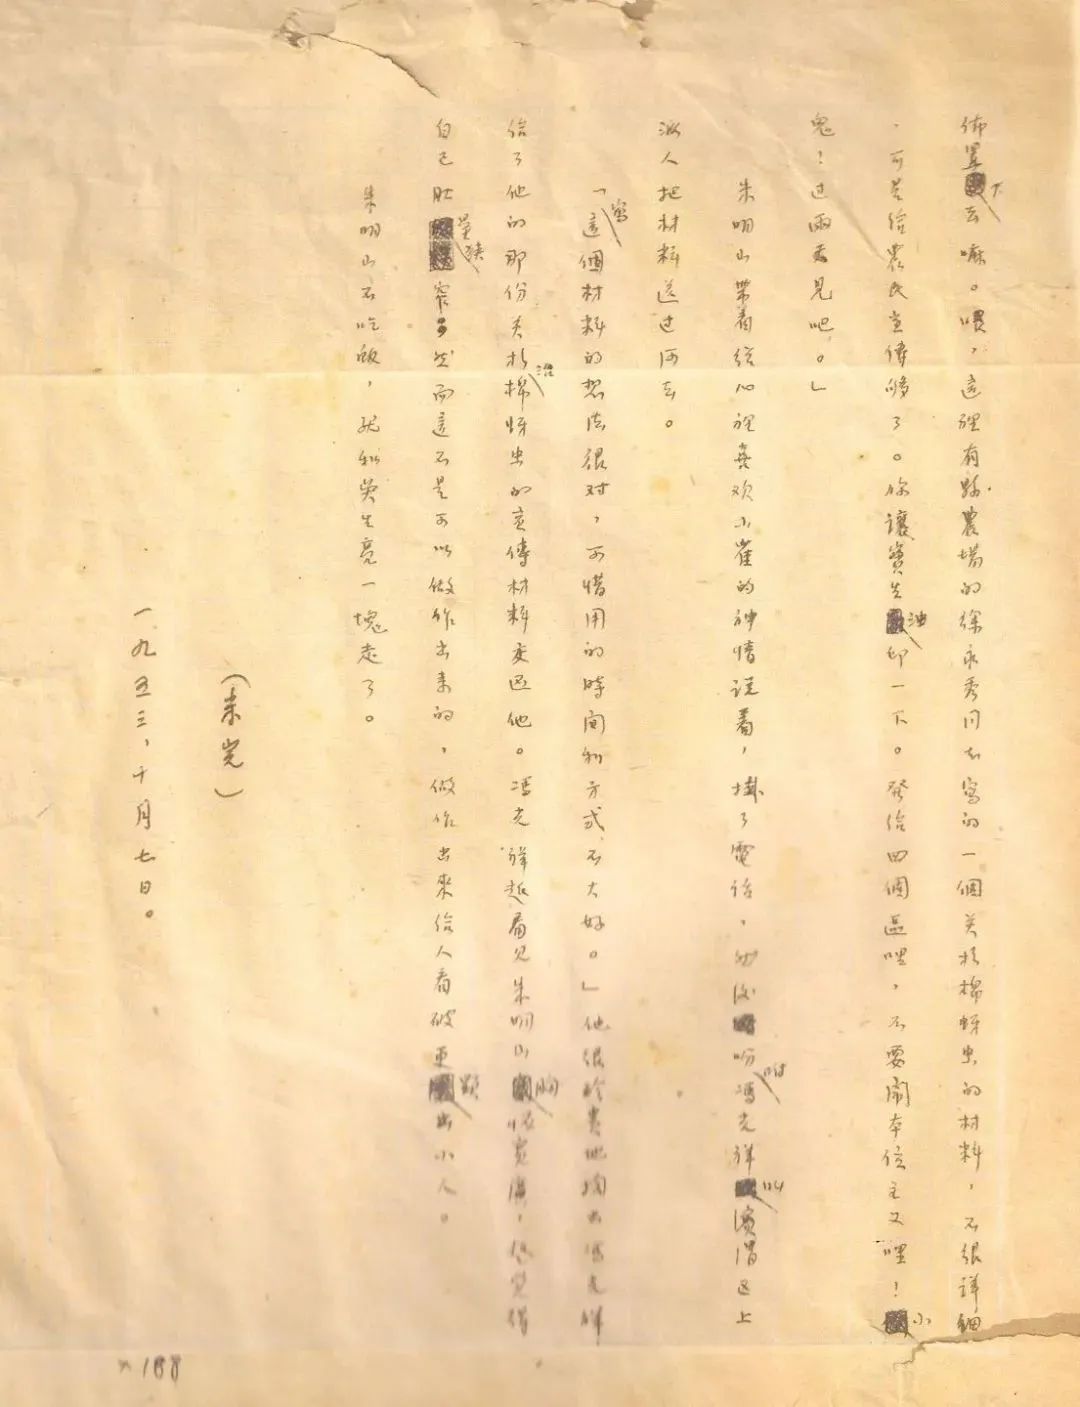 佈置下去嘛。喂，這裡有縣農場的徐永秀同志寫的一個关於棉蚜虫的材料，不很詳細
，可是给農民宣傳够了。你讓寶生油印一下。發给四個區哩，不要鬧本位主义哩！小
鬼！过兩天見吧。」
朱明山帶着從心裡喜欢小崔的神情説着，掛了電话，然後吩咐馮光祥叫濱渭区上
派人把材料送过河去。
「寫這個材料的想法很对，可惜用的時间和方式不大好。」他很珍貴地掏出馮光祥
给了他的那份关於棉蚜虫的宣傳材料交還他。馮光祥越看見朱明山胸怀寬廣，越覚得
自己肚量狹窄；然而這不是可以做作出来的，做作出來给人看破更顯出小人。
朱明山不吃飯，就和吳生亮一塊走了。
（未完）
一九五三，十月七日。
188